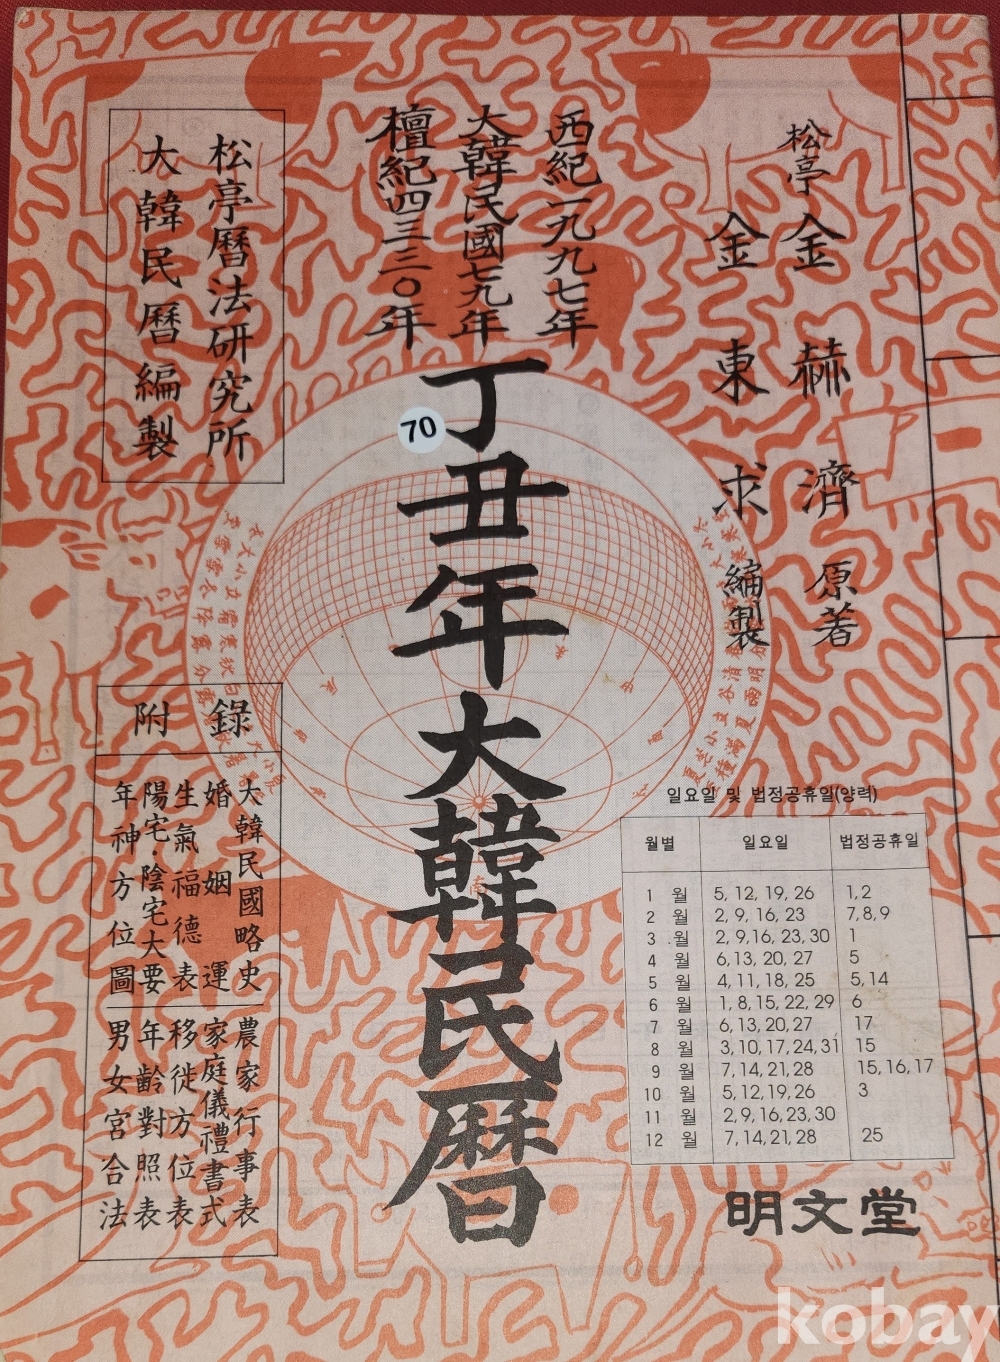 松亭 金赫濟 原著
金東求 編製
西紀一九九七年
大韓民國七九年
檀紀四三三〇年
松亭曆法硏究所
大韓民曆編製
丁丑年大韓民曆
70
附錄
大韓民國略史
婚姻運
生氣福德表
陽宅·陰宅大要
年神方位圖
農家行事表
家庭儀禮書式
移徙方位表
年齡對照表
男女宮合法
南
일요일 및 법정공휴일(양력)
월별 일요일 법정공휴일
1 월 5, 12, 19, 26 1, 2
2 월 2, 9, 16, 23 7, 8, 9
3 월 2, 9, 16, 23, 30 1
4 월 6, 13, 20, 27 5
5 월 4, 11, 18, 25 5, 14
6 월 1, 8, 15, 22, 29 6
7 월 6, 13, 20, 27 17
8 월 3, 10, 17, 24, 31 15
9 월 7, 14, 21, 28 15, 16, 17
10 월 5, 12, 19, 26 3
11 월 2, 9, 16, 23, 30
12 월 7, 14, 21, 28 25
明文堂
kobay